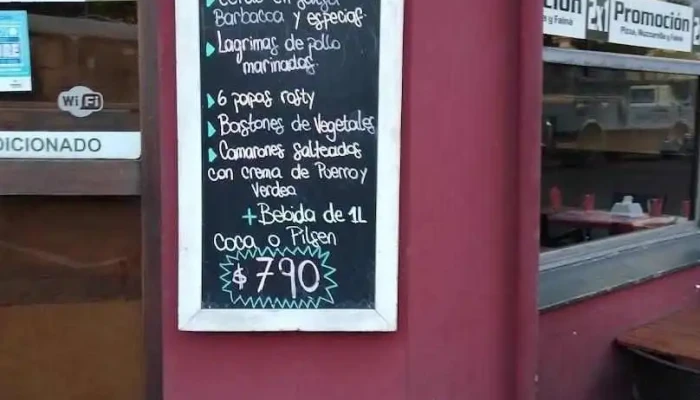 Barbacca y especias.
Lagrimas de pollo
marinadas.
6 papas rosty
Bastones de Vegetales
Camarones salteados
con crema de Puerro y
Verdeo
+ Bebida de 1L
Coca o Pilsen
$ 790
WiFi
DICIONADO
ción
y Fainá
2x1
Promoción
Pizza, Muzzarella y Fainá